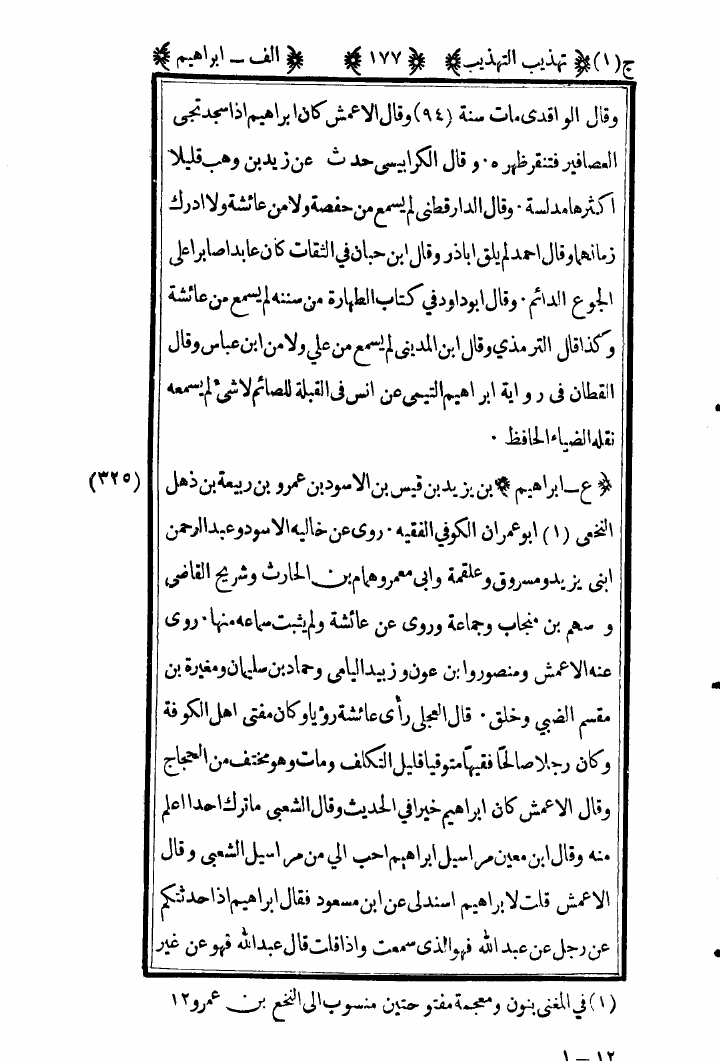 ج(١) ﴿تهذيب التهذيب﴾ ﴿١٧٧﴾ ﴿الف - ابراهيم﴾
وقال الواقدى مات سنة (٩٤) وقال الاعمش كان ابراهيم اذا سجد تجى
العصافير فتنقر ظهره ٠ وقال الكرابيسى حدث عن زيد بن وهب قليلا
اكثرها مدلسة ٠ وقال الدارقطنى لم يسمع من حفصة ولا من عائشة ولا ادرك
زمانهما وقال احمد لم يلق اباذر وقال ابن حبان في الثقات كان عابدا صابرا على
الجوع الدائم ٠ وقال ابوداود في كتاب الطهارة من سننه لم يسمع من عائشة
وكذا قال الترمذي وقال ابن المدينى لم يسمع من علي ولا من ابن عباس وقال
القطان فى رواية ابراهيم التيمى عن انس فى القبلة للصائم لاشئ لم يسمعه
نقله الضياء الحافظ ٠
(٣٢٥) ﴿ع - ابراهيم﴾ بن يزيد بن قيس بن الاسود بن عمرو بن ربيعة بن ذهل
النخعى (١) ابو عمران الكوفي الفقيه ٠ روى عن خاليه الاسود وعبد الرحمن
ابنى يزيد ومسروق وعلقمة وابى معمر وهمام بن الحارث وشريح القاضي
و سهم بن منجاب وجماعة وروى عن عائشة ولم يثبت سماعه منها ٠ روى
عنه الاعمش ومنصور وابن عون وزبيد اليامى وحماد بن سليمان ومغيرة بن
مقسم الضبي وخلق ٠ قال العجلى رأى عائشة رؤيا وكان مفتى اهل الكوفة
وكان رجلا صالحًا فقيهًا متوقيا قليل التكلف ومات وهو مختف من الحجاج
وقال الاعمش كان ابراهيم خيرا في الحديث وقال الشعبى ماترك احدا اعلم
منه وقال ابن معين مراسيل ابراهيم احب الي من مراسيل الشعبى وقال
الاعمش قلت لابراهيم اسند لى عن ابن مسعود فقال ابراهيم اذا حدثتكم
عن رجل عن عبد الله فهو الذى سمعت واذا قلت قال عبد الله فهو عن غير
(١) في المغنى بنون ومعجمة مفتوحتين منسوب الى النخع بن عمرو ١٢
١ - ١٢